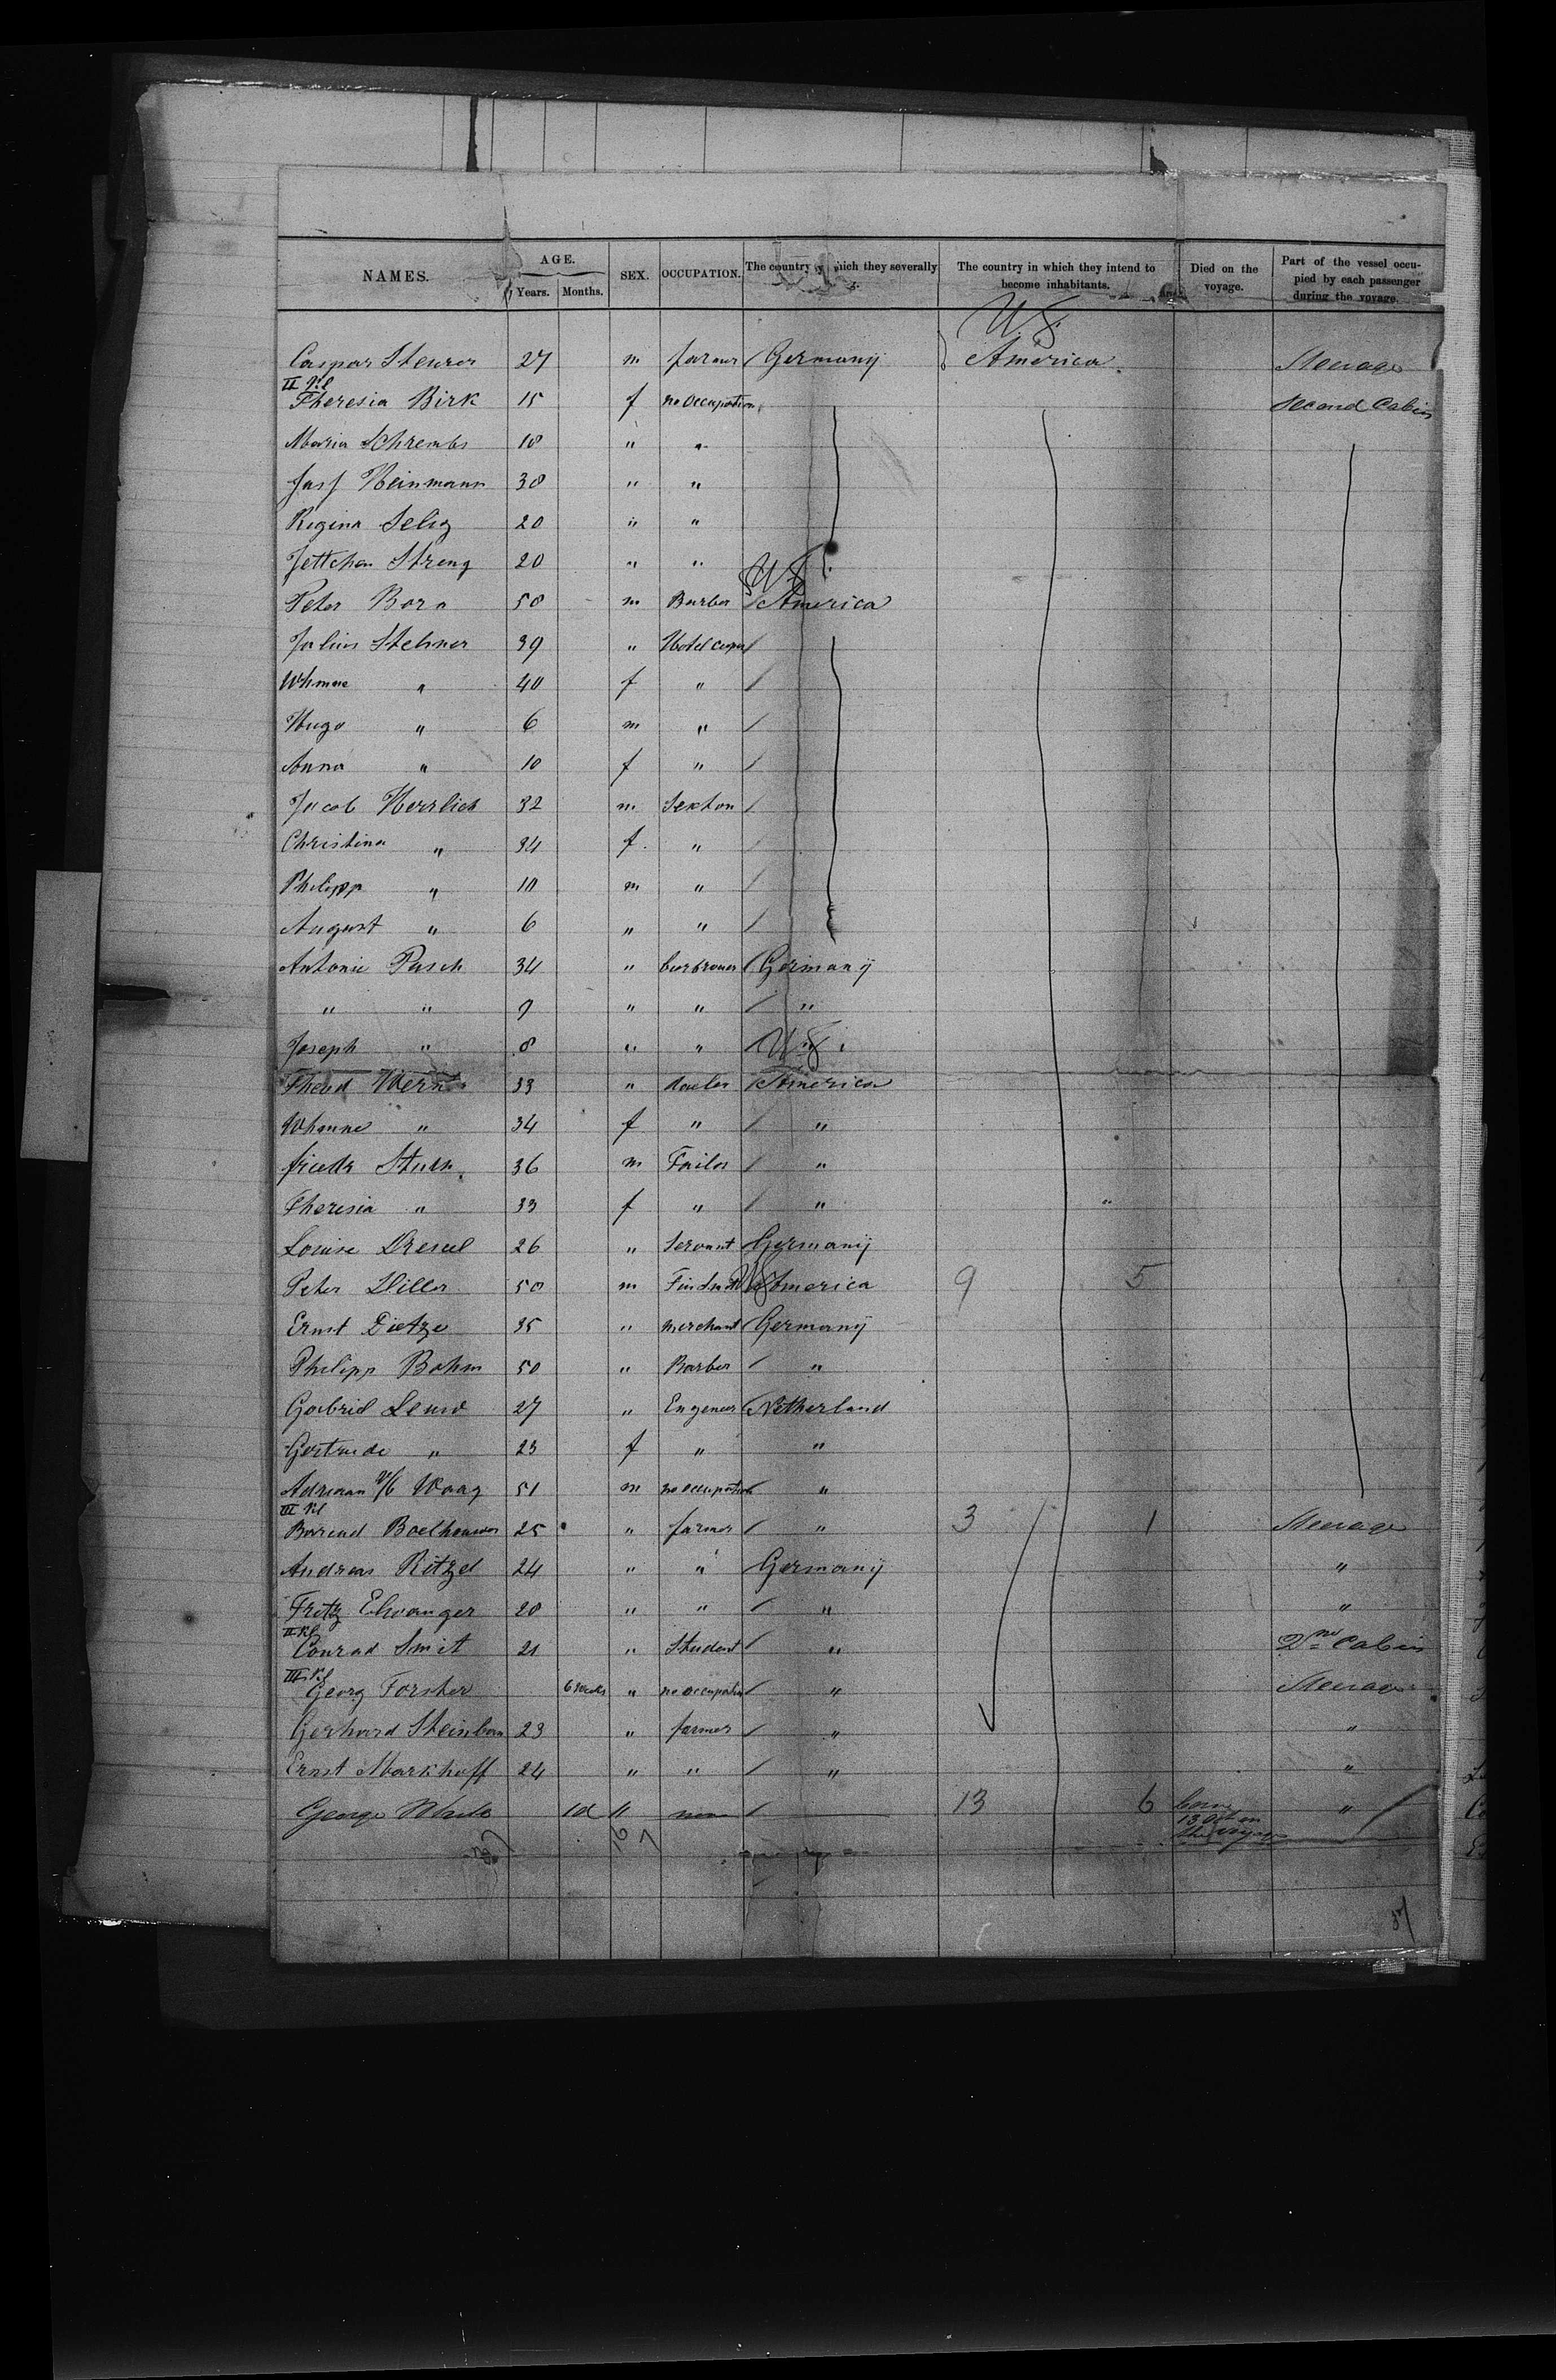 NAMES. AGE. SEX. OCCUPATION. The country which they severally The country in which they intend to become inhabitants. Died on the voyage. Part of the vessel occupied by each passenger during the voyage.
Years. Months.
U.S.
Caspar Steurer 27 m farmer Germany America. Steerage
II Kl
Theresia Birk 15 f no occupation Second Cabin
Maria Schrembs 18 " "
Jasf Heinmann 30 " "
Regina Selig 20 " "
Jettchen Streng 20 " "
U.S.
Peter Born 50 m Barber America
Julius Stehner 39 " Hotel
" 40 f "
Hugo " 6 m "
Anna " 10 f "
Jacob Herrlich 32 m Sexton
Christina " 34 f. "
Philipp " 10 m "
August " 6 " "
Antonie Pasch 34 " Germany
" " 9 " " "
Joseph " 8 " " U.S.
Theod Wern 33 " America
" 34 f " "
friedr Sturn 36 m Tailor "
Theresia " 33 f " " "
Louise 26 " Servant Germany
Peter Diller 50 m U.S. America 9 5
Ernst Dietze 35 " merchant Germany
Philipp Bohm 50 " Barber "
Gabriel Leuw 27 " Engeneer Netherland
Gertrude " 23 f " "
Adriaan v/d Waag 51 m no occupation "
III Kl
Barend Boelhouwer 25 " farmer " 3 1 Steerage
Andreas Ritzel 24 " " Germany "
Fritz Elwanger 20 " " " "
II Kl
Conrad Smit 21 " Student " 2nd Cabin
III Kl
Georg Forster 6 weeks " no occupation " Steerage
Gerhard Steinborn 23 " farmer " "
Ernst Markhoff 24 " " " "
George 1d " none 13 6 born 13 Oct on the voyage "